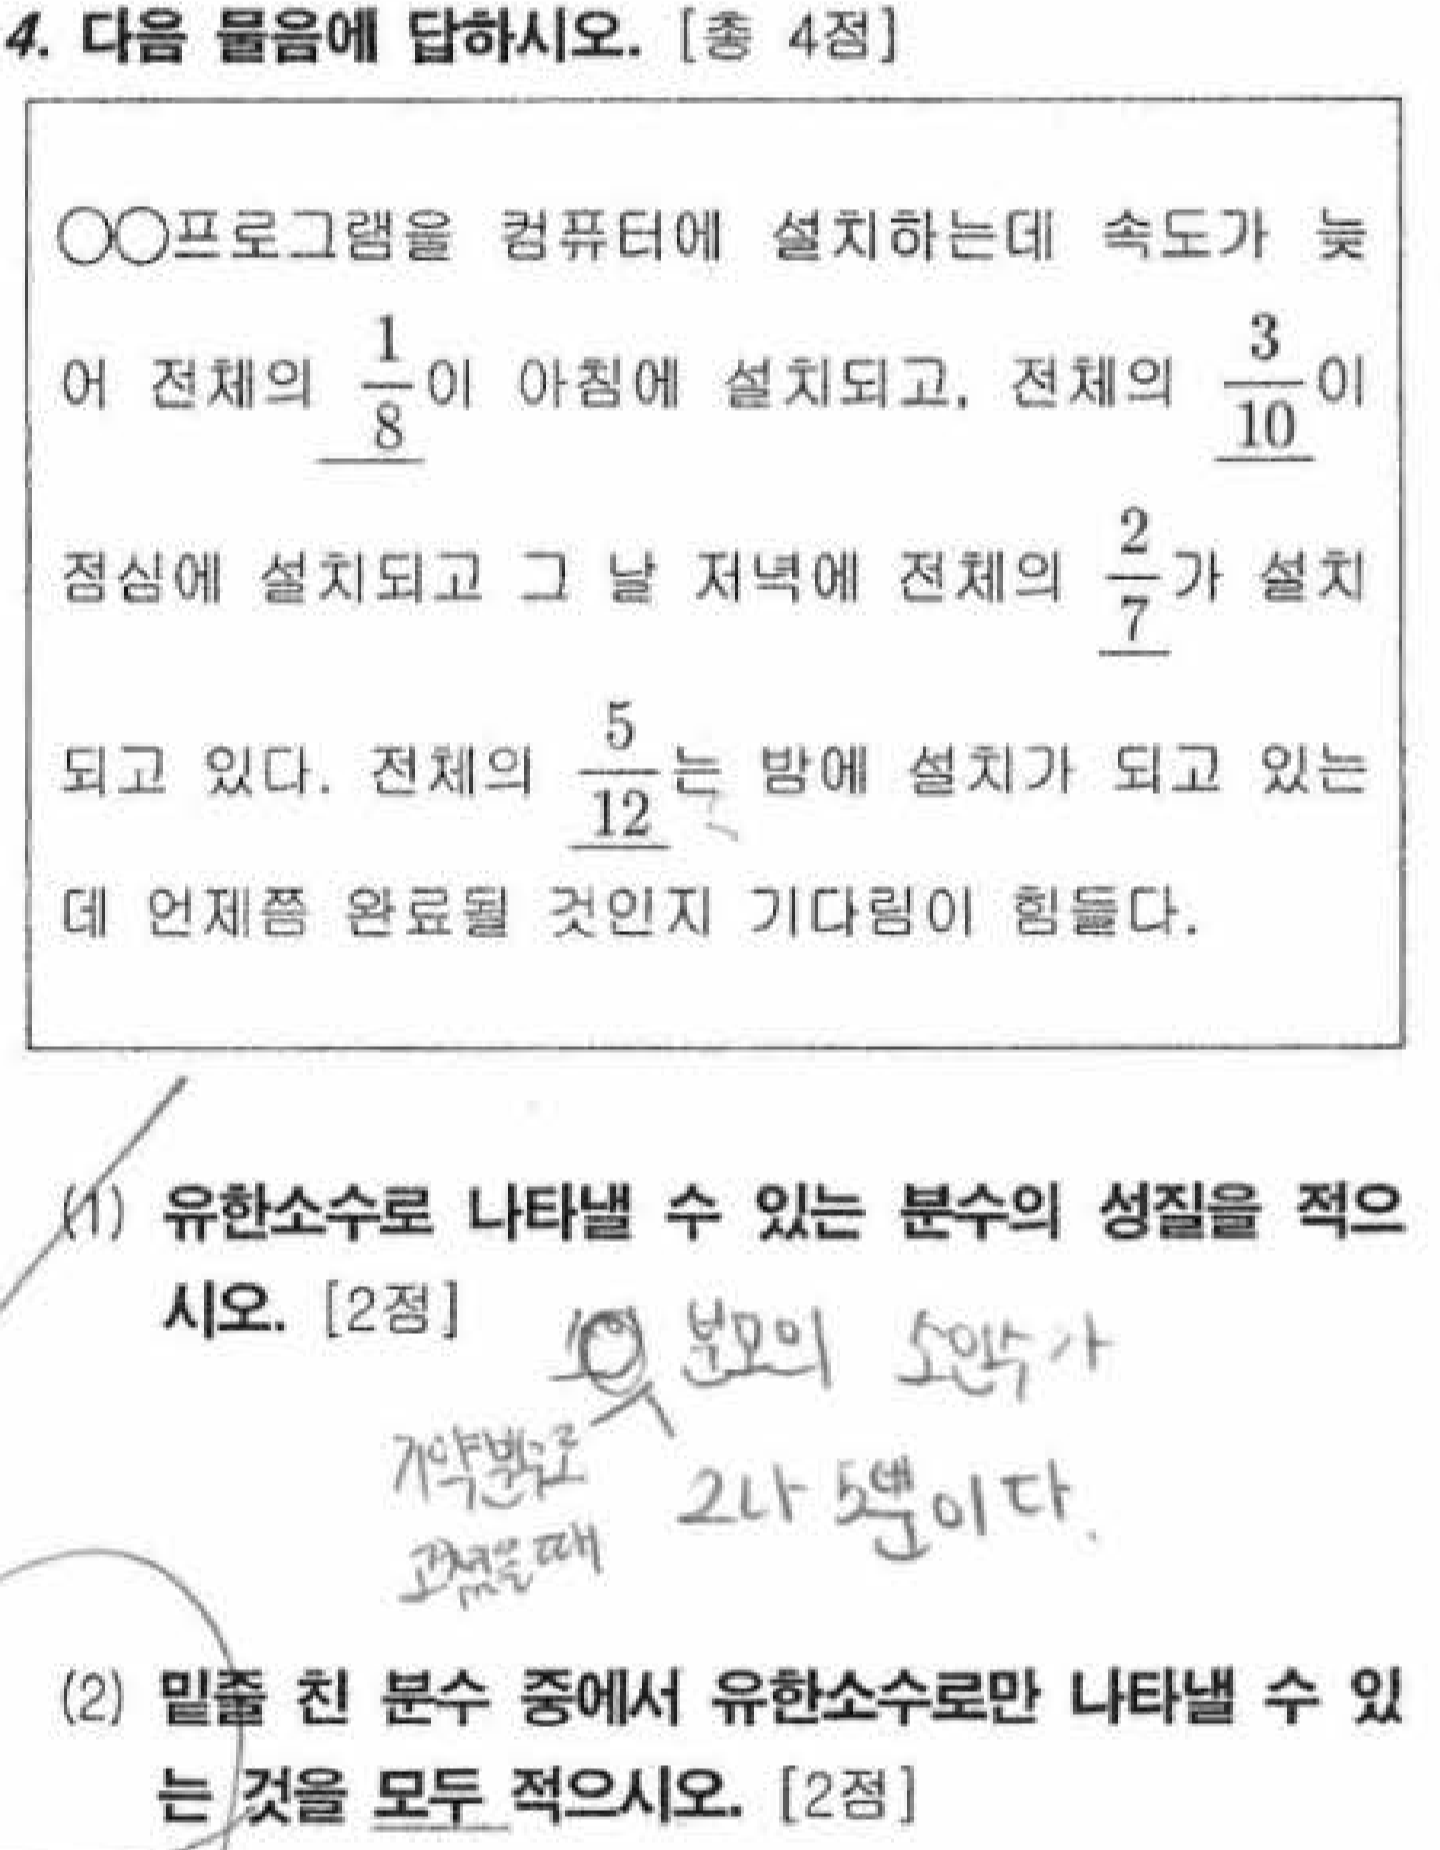 4. 다음 물음에 답하시오. [총 4점]
○○프로그램을 컴퓨터에 설치하는데 속도가 늦
어 전체의 1/8이 아침에 설치되고, 전체의 3/10이
점심에 설치되고 그 날 저녁에 전체의 2/7가 설치
되고 있다. 전체의 5/12는 밤에 설치가 되고 있는
데 언제쯤 완료될 것인지 기다림이 힘들다.
(1) 유한소수로 나타낼 수 있는 분수의 성질을 적으
시오. [2점]
분모의 소인수가
기약분수로
2나 5뿐이다.
고쳤을때
(2) 밑줄 친 분수 중에서 유한소수로만 나타낼 수 있
는 것을 모두 적으시오. [2점]